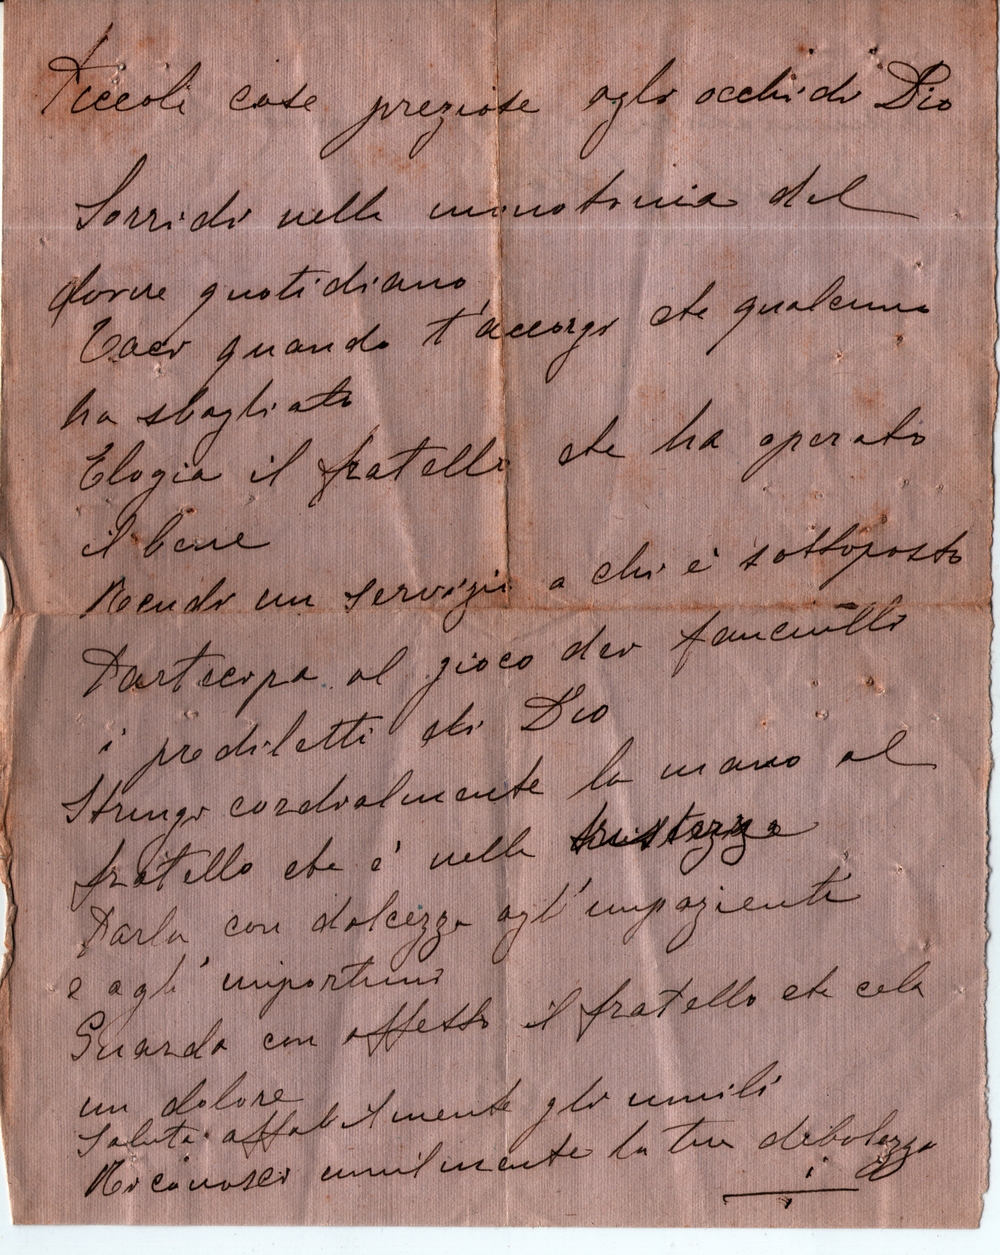 Piccoli cose preziose agli occhi di Dio
Sorridi nella monotonia del
dovere quotidiano
Taci quando t'accorgi che qualcuno
ha sbagliato
Elogia il fratello che ha operato
il bene
Rendi un servizio a chi è sottoposto
Partecipa al gioco dei fanciulli
i prediletti di Dio
Stringi cordialmente la mano al
fratello che è nella tristezza
Parla con dolcezza agl'impazienti
e agl'importuni
Guarda con affetto il fratello che cela
un dolore
Saluta affabilmente gli umili
Riconosci umilmente la tua debolezza